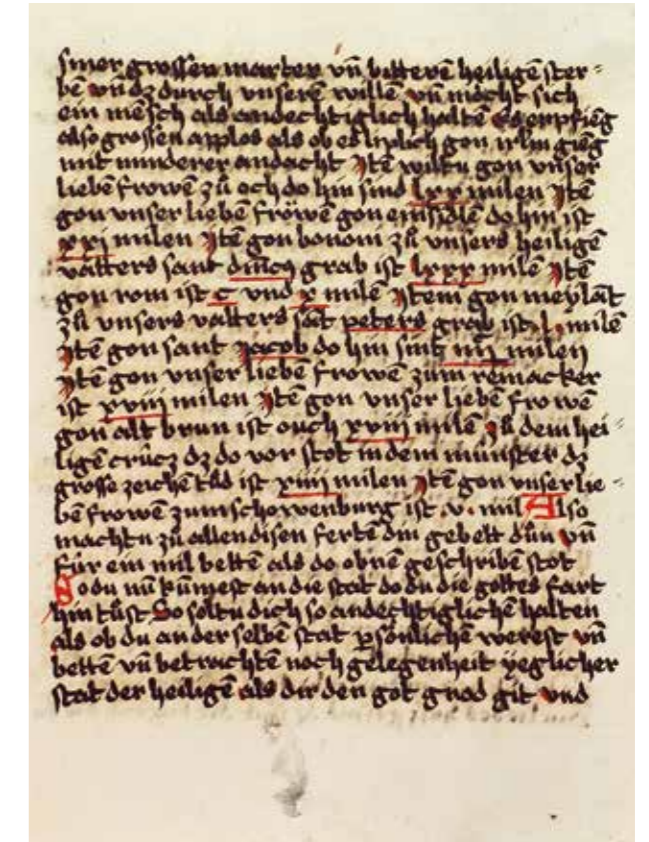 siner grossen marter vn̄ bitterē heiligē ster⸗
bē vn̄ dz durch vnserē willē vn̄ möcht sich
ein mēsch als andechtiglich haltē es enpfieg
also grossen applos als ob es liplich gon irlm gieg
mit minderer andacht Jtē wiltu gon vnser
liebē frowē zů och do hin sind lxx milen Jtē
gon vnser lieben fröwē gon einsidlē do hin ist
xxj milen Jtē gon bononi zů vnsers heiligē
vatters sant dm̄cq grab ist lxxx milē Jtē
gon rom ist c vnd x milē Jtem gon meylāt
zů vnsers vatters sāt peters grab ist l milē
Jtē gon sant Jacob do hin sint iiijc milen
Jtē gon vnser liebē frowē zum remacker
ist xviij milen Jtē gon vnser liebē frowē
gon alt brun ist ouch xviij milē zů dem hei⸗
ligē crücz dz do vor stot in dem münster dz
grosse zeichē tůd ist xiiij milen Jtē gon vnser lie⸗
bē frowē zum schowenburg ist .v. mil Also
machtu zů allen disen ferten din gebett důn vn̄
für ein mil bettē als do obnē geschribē stot
So du nū kūmest an die stat do du die gottes fart
hin tůst So soltu dich so andechtiglichē halten
als ob du an der selbē stat psönlichē werest vn̄
bettē vn̄ betrachtē noch gelegenheit yeglicher
stat der heiligē als dir den got gnad git vnd